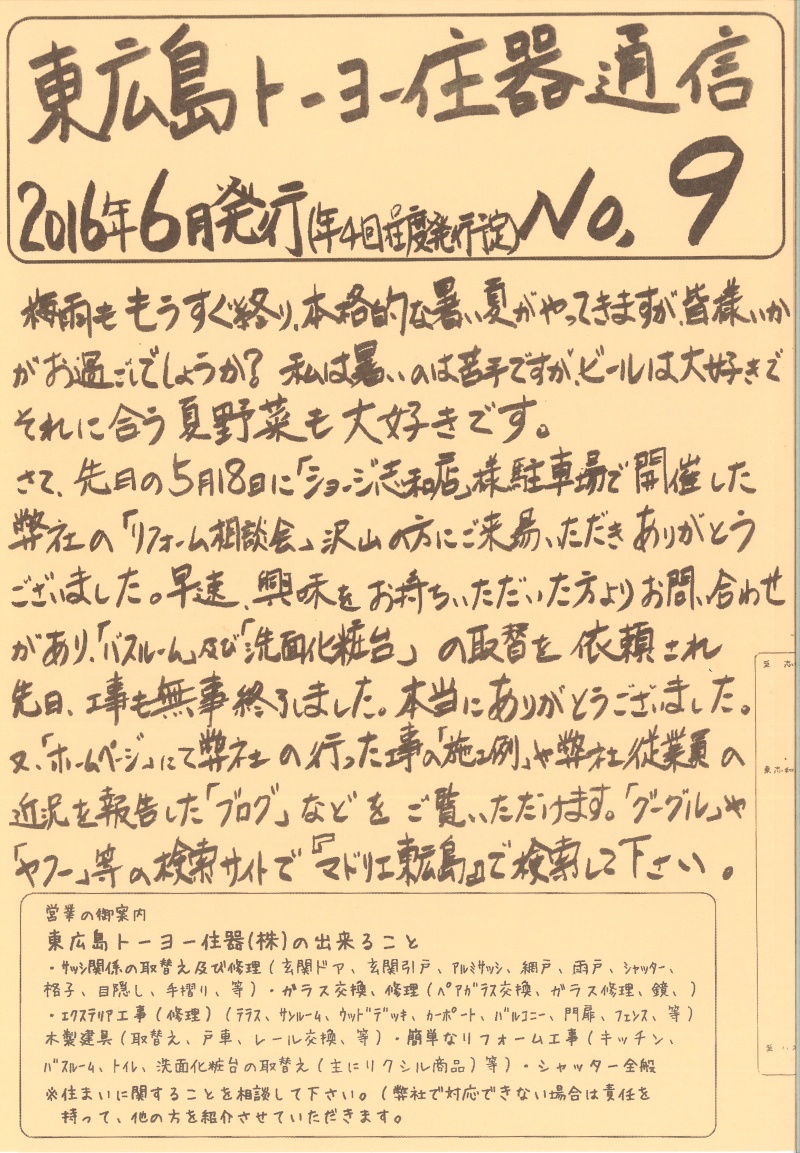 東広島トーヨー住器通信
2016年6月発行(年4回程度発行予定) No. 9
梅雨ももうすぐ終り、本格的な暑い夏がやってきますが、皆様いか
がお過ごしでしょうか? 私は暑いのは苦手ですが、ビールは大好きで
それに合う夏野菜も大好きです。
さて、先月の5月18日に「ショージ志和店」様駐車場で開催した
弊社の「リフォーム相談会」沢山の方にご来場いただきありがとう
ございました。早速、興味をお持ちいただいた方よりお問い合わせ
があり、「バスルーム」及び「洗面化粧台」の取替を依頼され
先日、工事も無事終了しました。本当にありがとうございました。
又、「ホームページ」にて弊社の行った工事の「施工例」や弊社従業員の
近況を報告した「ブログ」などをご覧いただけます。「グーグル」や
「ヤフー」等の検索サイトで『マドリエ東広島』で検索して下さい。
営業の御案内
東広島トーヨー住器(株)の出来ること
・サッシ関係の取替え及び修理(玄関ドア、玄関引戸、アルミサッシ、網戸、雨戸、シャッター、
格子、目隠し、手摺り、等)・ガラス交換、修理(ペアガラス交換、ガラス修理、鏡、)
・エクステリア工事(修理)(テラス、サンルーム、ウッドデッキ、カーポート、バルコニー、門扉、フェンス、等)
木製建具(取替え、戸車、レール交換、等)・簡単なリフォーム工事(キッチン、
バスルーム、トイレ、洗面化粧台の取替え(主にリクシル商品)等)・シャッター全般
※住まいに関することを相談して下さい。(弊社で対応できない場合は責任を
持って、他の方を紹介させていただきます。(